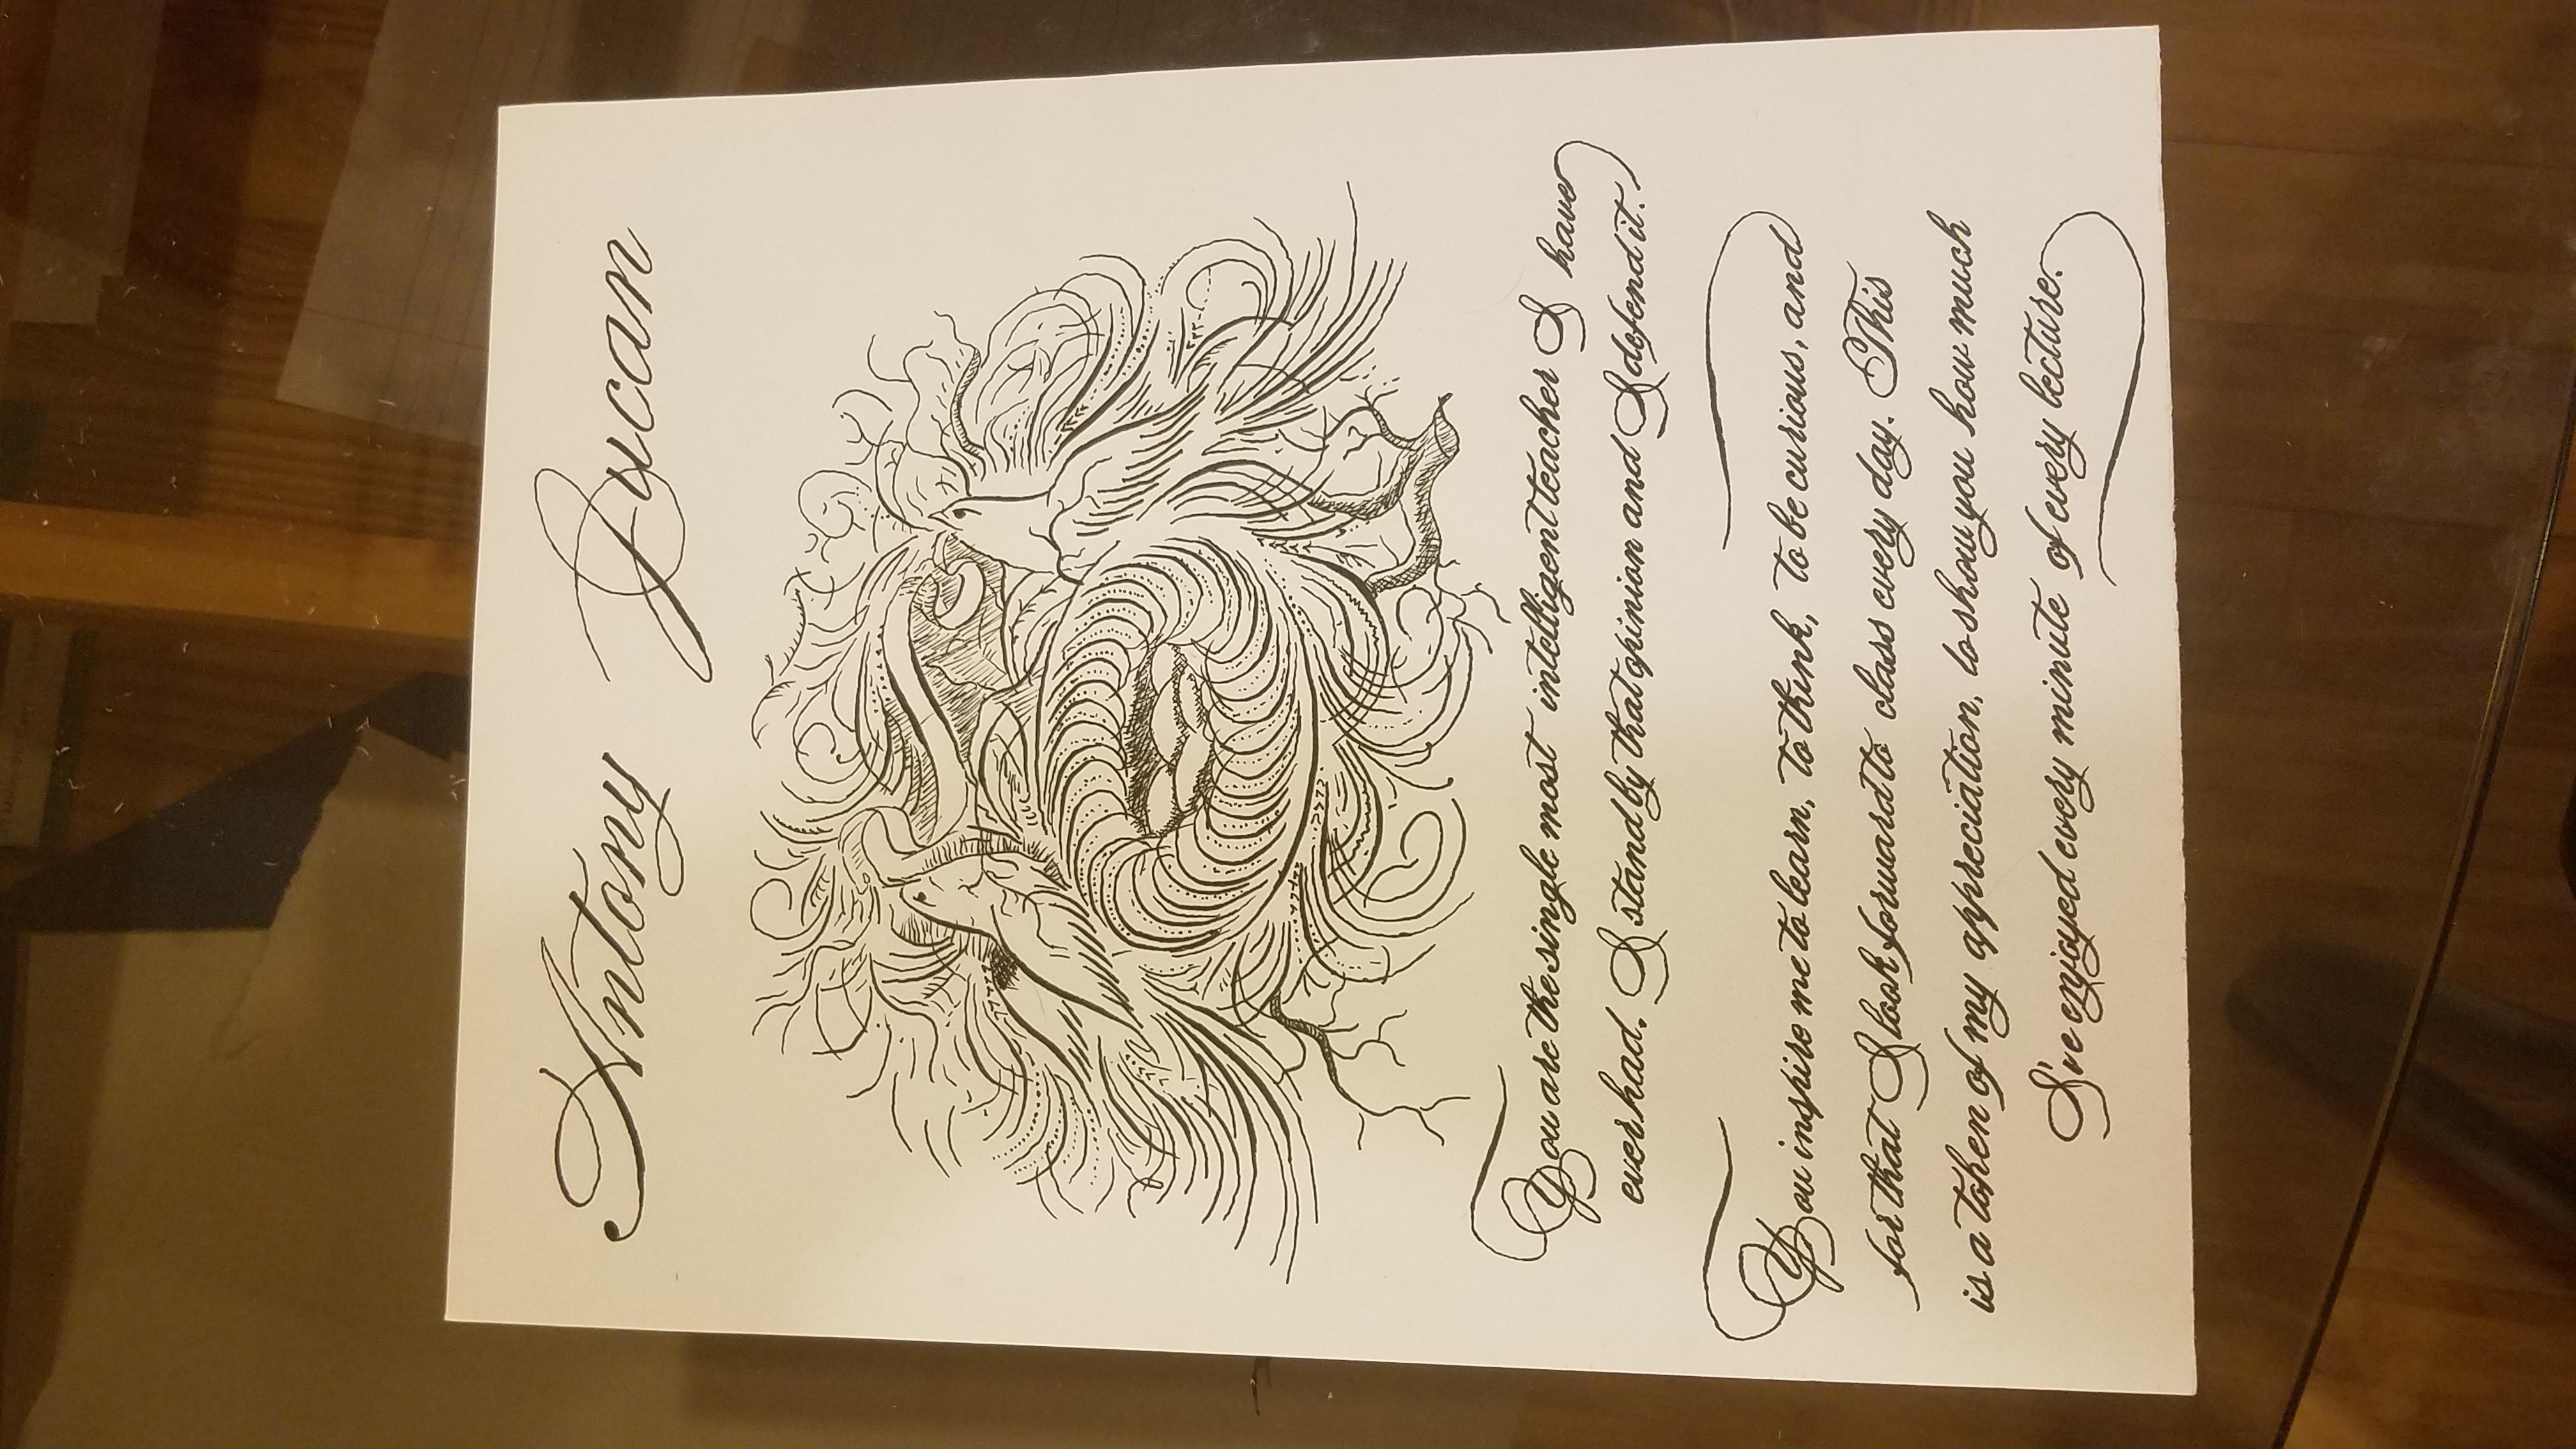 Antony Jucan
You are the single most intelligent teacher I have
ever had. I stand by that opinion and I defend it.
You inspire me to learn, to think, to be curious, and
for that I look forward to class every day. This
is a token of my appreciation, to show you how much
I've enjoyed every minute of every lecture.